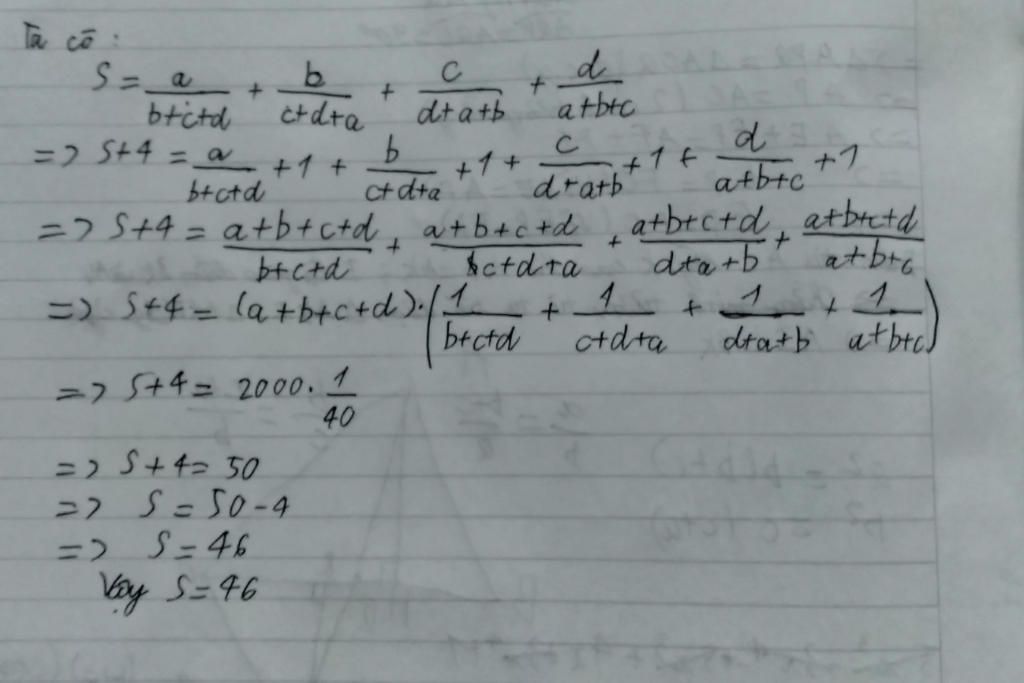 Ta có :
S = a/(b+c+d) + b/(c+d+a) + c/(d+a+b) + d/(a+b+c)
=> S+4 = a/(b+c+d) +1 + b/(c+d+a) +1 + c/(d+a+b) +1 + d/(a+b+c) +1
=> S+4 = (a+b+c+d)/(b+c+d) + (a+b+c+d)/(c+d+a) + (a+b+c+d)/(d+a+b) + (a+b+c+d)/(a+b+c)
=> S+4 = (a+b+c+d).(1/(b+c+d) + 1/(c+d+a) + 1/(d+a+b) + 1/(a+b+c))
=> S+4 = 2000. 1/40
=> S+4 = 50
=> S = 50-4
=> S = 46
Vậy S = 46